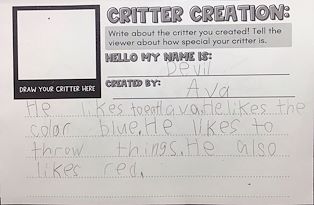 CRITTER CREATION:
Write about the critter you created! Tell the
viewer about how special your critter is.
HELLO MY NAME IS:
Devil
CREATED BY:
Ava
DRAW YOUR CRITTER HERE
He likes to eat lava. He likes the
color blue. He likes to
throw things. He also
likes red.